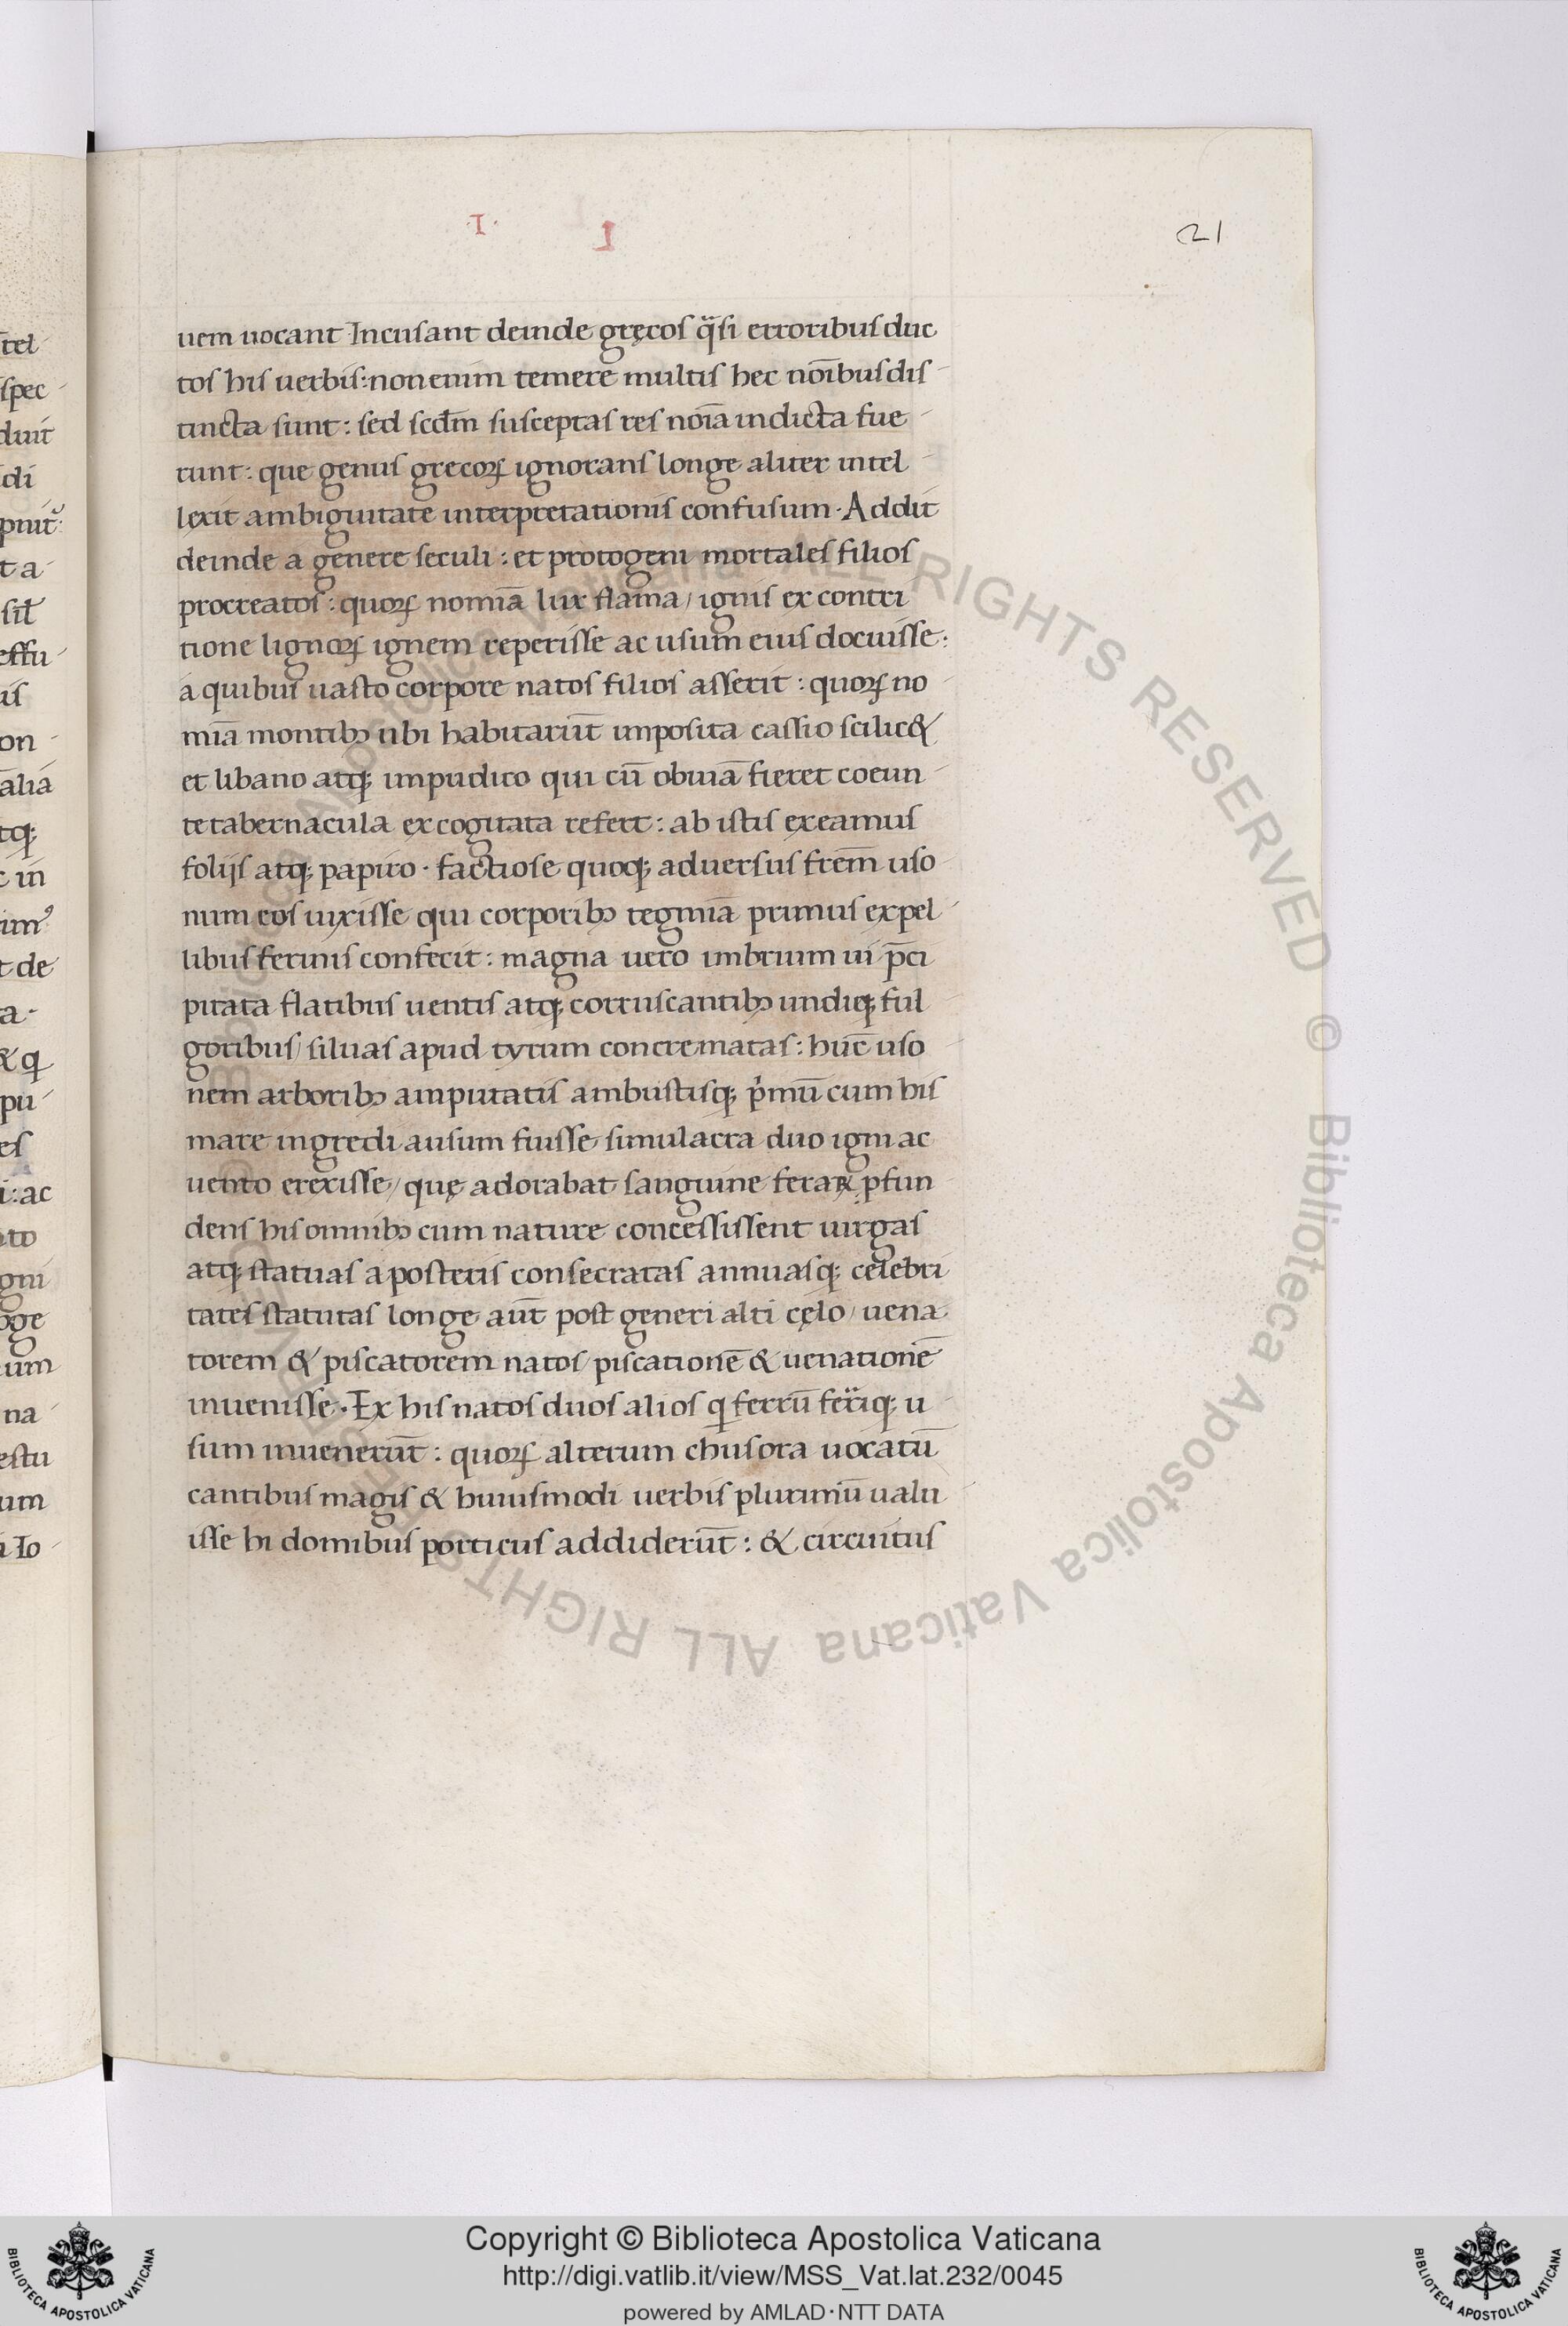 ·I· I
21
uem uocant Incusant deinde gręcos q̈si erroribus duc
tos his uerbis: non enim temere multis hec noibus̄ dis
tincta sunt: sed scdm̄ susceptas res noīa indicta fue
runt: que genus grecoꝝ ignorans longe aliter intel
lexit ambiguitate interpretationis confusum · Addit
deinde a genere seculi: et protogeni mortales filios
procreatos: quoꝝ nomīa lux flama / ignis ex contri
tione lignoꝝ ignem reperisse ac usum eius docuisse:
a quibus uasto corpore natos filios asserit: quoꝝ no
mīa montibꝫ ubi habitarūt imposita cassio scilic&
et libano atqꝫ impudico qui cū obuiā fieret coeun
te tabernacula excogitata refert: ab istis exeamus
folijs atqꝫ papiro · factiose quoqꝫ aduersus frem̄ uso
num eos uixisse qui corporibꝫ tegmīa primus ex pel
libus ferinis confecit: magna uero imbrium ui p̄ci
pitata flatibus uentis atqꝫ corruscantibꝫ undiqꝫ ful
goribus / siluas apud tyrum concrematas: huc̄ uso
nem arboribꝫ amputatis ambustisqꝫ p̓mū cum his
mare ingredi ausum fuisse simulacra duo igni ac
uento erexisse / quę adorabat sanguine feraꝝ ꝓfun
dens his omnibꝫ cum nature concessissent uirgas
atqꝫ statuas a posteris consecratas annuasqꝫ celebri
tates statutas longe aūt post generi alti cęlo / uena
torem & piscatorem natos / piscationē & uenationē
inuenisse · Ex his natos duos alios q̣ ferrū ferriqꝫ u
sum inuenerūt: quoꝝ alterum chusora uocatū
cantibus magis & huiusmodi uerbis plurimū ualu
isse hi domibus porticus addiderūt: & circuitus
tel
spec
duit
di
pnit᷒:
t a
sil̄
effu
us
on
alia
tqꝫ
c in
im᷒
t de
a·
& q
pu
es
i: ac
to
gni
oge
um
na
estu
um
i Io
© Biblioteca Apostolica Vaticana ALL RIGHTS RESERVED © Biblioteca Apostolica Vaticana ALL RIGHTS RESERVED
BIBLIOTECA APOSTOLICA VATICANA
Copyright © Biblioteca Apostolica Vaticana
http://digi.vatlib.it/view/MSS_Vat.lat.232/0045
powered by AMLAD·NTT DATA
BIBLIOTECA APOSTOLICA VATICANA